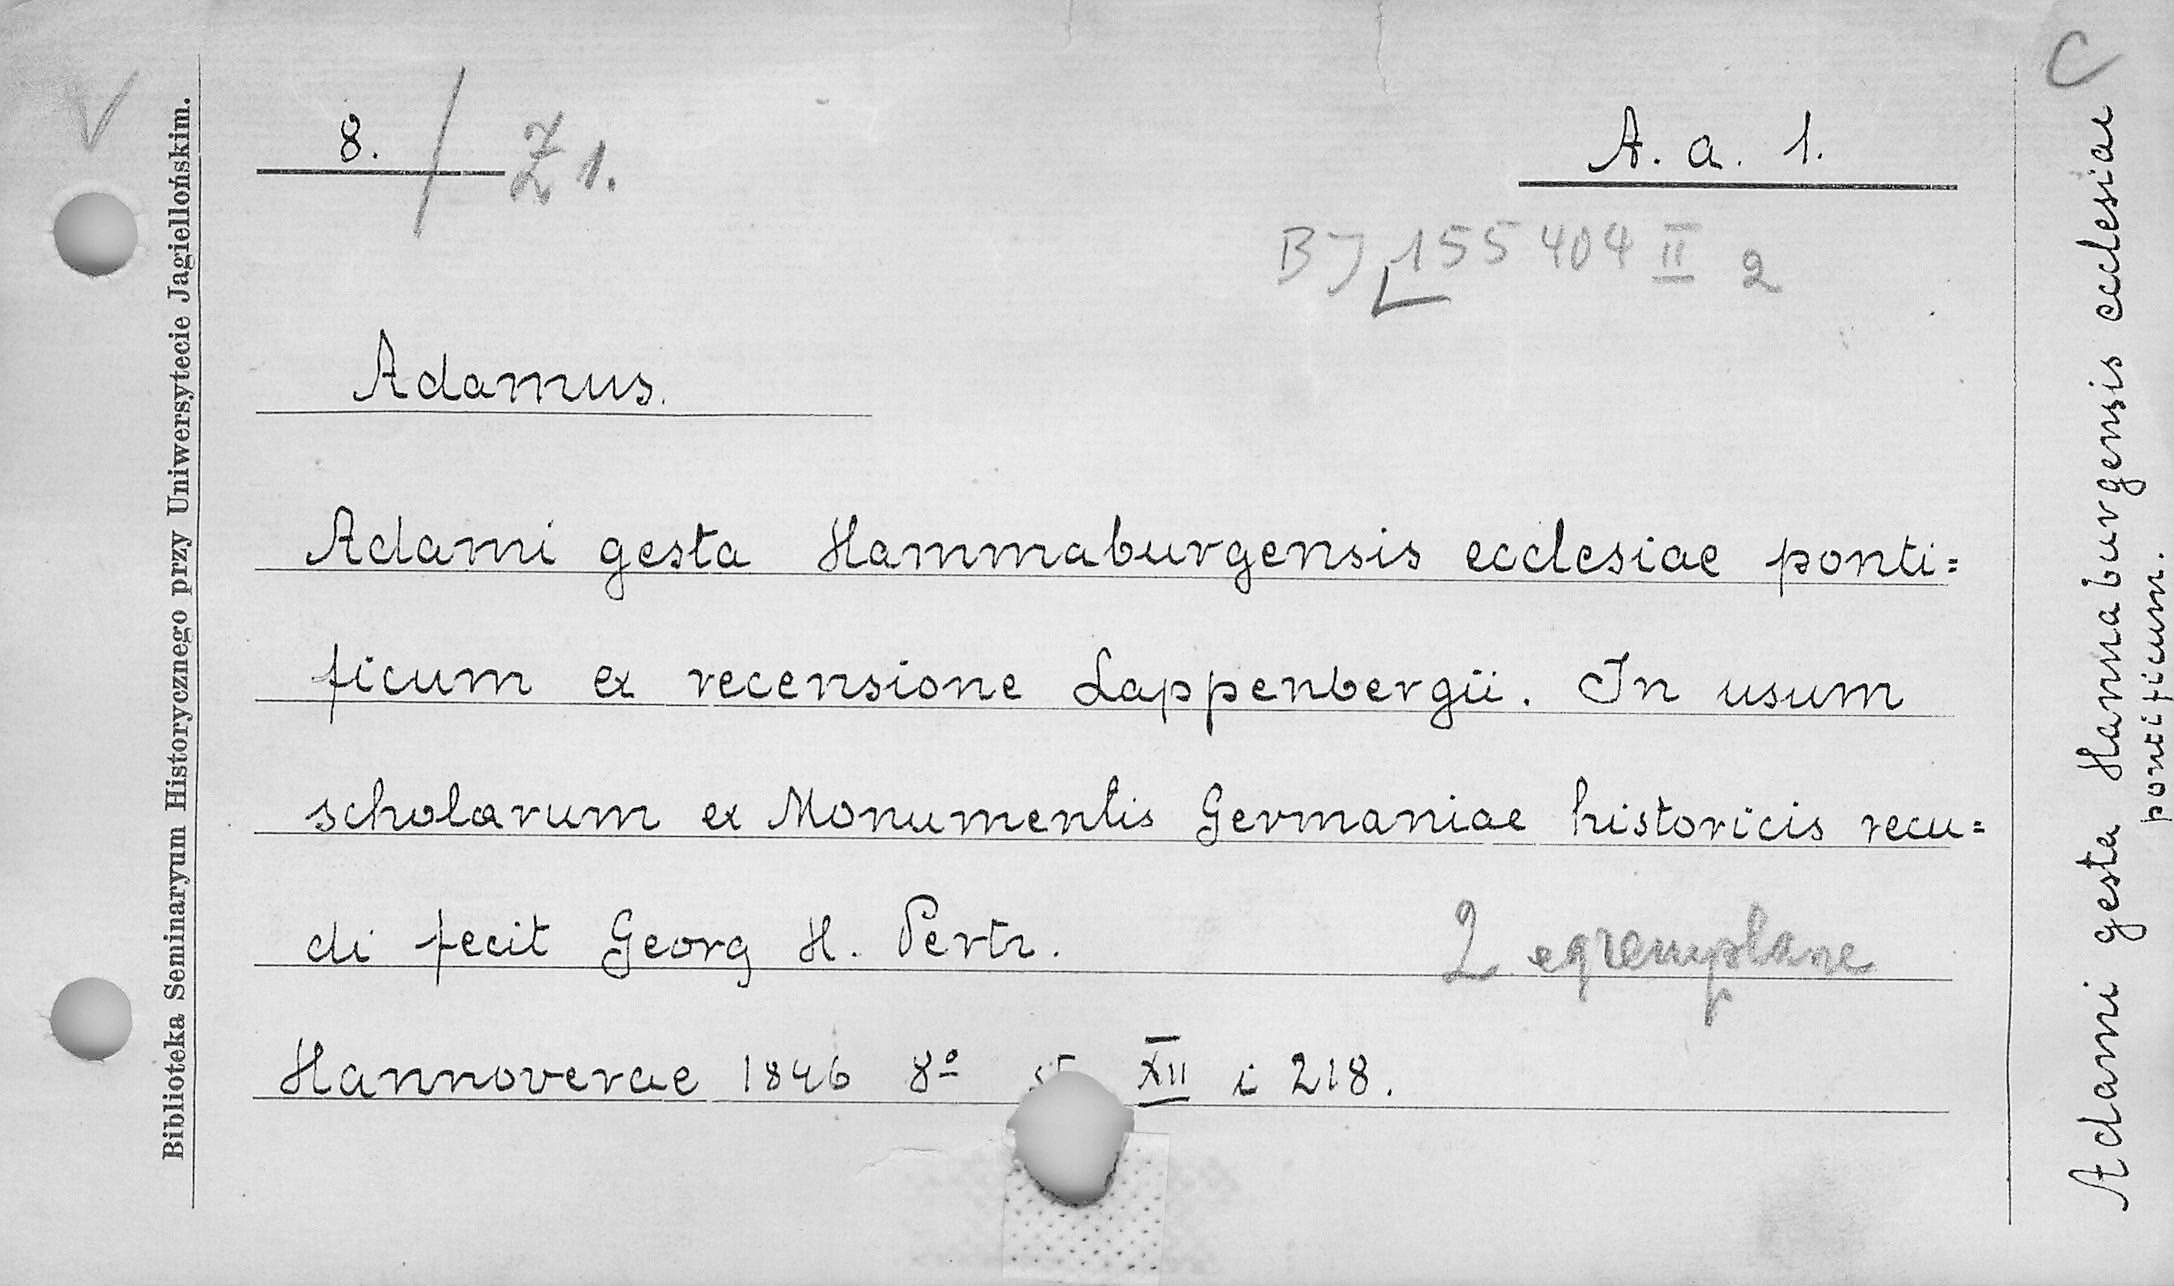 8. / Z 1.
A. a. 1.
C
BJ 155404 II 2
Adamus.
Adami gesta Hammaburgensis ecclesiae ponti=
ficum ex recensione Lappenbergii. In usum
scholarum ex Monumentis Germaniae historicis recu=
di fecit Georg H. Pertz.
2 egzemplarze
Hannoverae 1846 8º st XII i 218.
Biblioteka Seminaryum Historycznego przy Uniwersytecie Jagiellońskim.
Adami gesta Hammaburgensis ecclesiae
pontificum.